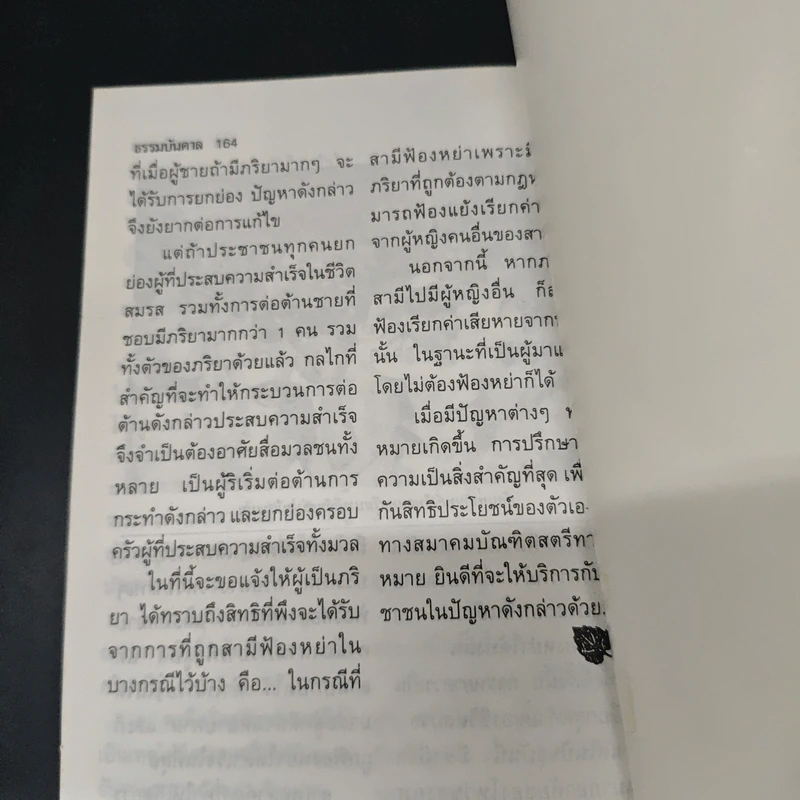 ธรรมบันดาล 164
ที่เมื่อผู้ชายถ้ามีภริยามากๆ จะ
ได้รับการยกย่อง ปัญหาดังกล่าว
จึงยังยากต่อการแก้ไข
แต่ถ้าประชาชนทุกคนยก
ย่องผู้ที่ประสบความสำเร็จในชีวิต
สมรส รวมทั้งการต่อต้านชายที่
ชอบมีภริยามากกว่า 1 คน รวม
ทั้งตัวของภริยาด้วยแล้ว กลไกที่
สำคัญที่จะทำให้กระบวนการต่อ
ต้านดังกล่าวประสบความสำเร็จ
จึงจำเป็นต้องอาศัยสื่อมวลชนทั้ง
หลาย เป็นผู้ริเริ่มต่อต้านการ
กระทำดังกล่าว และยกย่องครอบ
ครัวผู้ที่ประสบความสำเร็จทั้งมวล
ในที่นี้จะขอแจ้งให้ผู้เป็นภริ
ยา ได้ทราบถึงสิทธิที่พึงจะได้รับ
จากการที่ถูกสามีฟ้องหย่าใน
บางกรณีไว้บ้าง คือ... ในกรณีที่
สามีฟ้องหย่าเพราะมี
ภริยาที่ถูกต้องตามกฎ
มารถฟ้องแย้งเรียกค่า
จากผู้หญิงคนอื่นของสา
นอกจากนี้ หากภ
สามีไปมีผู้หญิงอื่น ก็
ฟ้องเรียกค่าเสียหายจาก
นั้น ในฐานะที่เป็นผู้มาแ
โดยไม่ต้องฟ้องหย่าก็ได้
เมื่อมีปัญหาต่างๆ
หมายเกิดขึ้น การปรึกษา
ความเป็นสิ่งสำคัญที่สุด เพื่
กันสิทธิประโยชน์ของตัวเอ
ทางสมาคมบัณฑิตสตรีทา
หมาย ยินดีที่จะให้บริการกับ
ชาชนในปัญหาดังกล่าวด้วย.